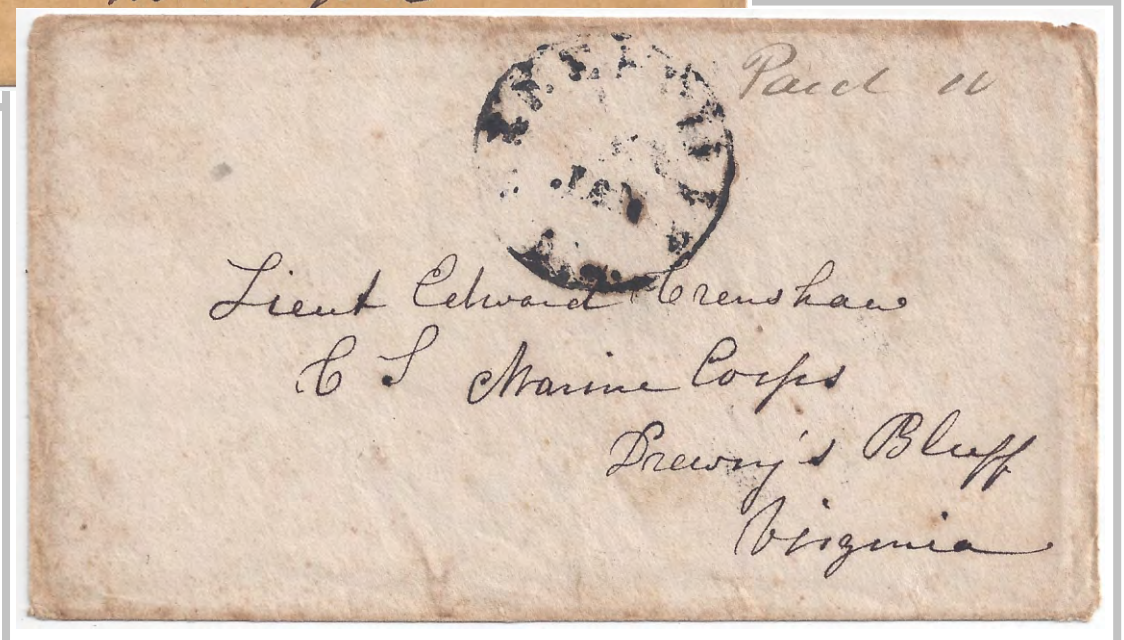 Paid 10
Lieut Edward Crenshaw
C S Marine Corps
Drewry's Bluff
Virginia